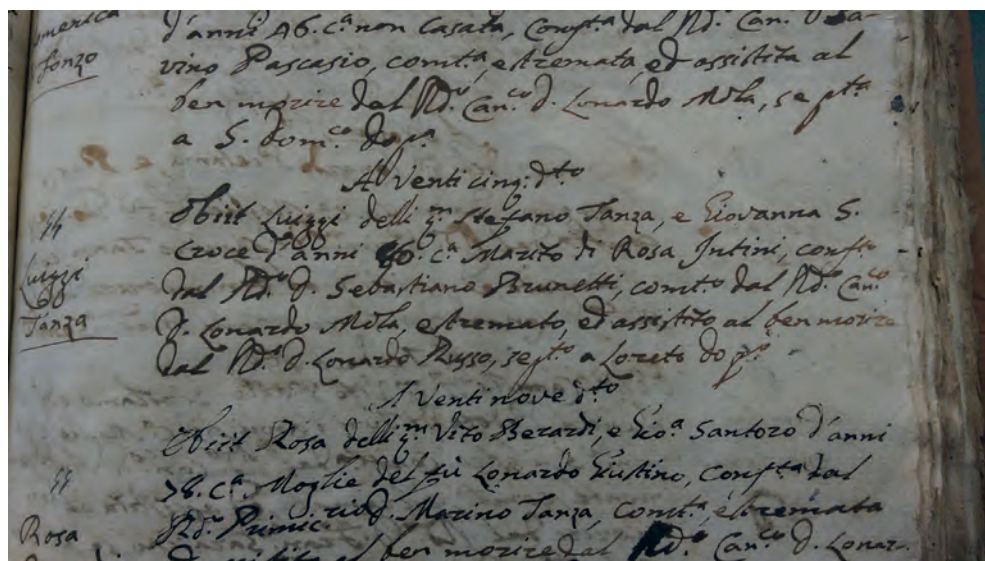 d'anni 46. c.ª non Casata, Conf.ta dal Rd. Can.
Fonzo
vino Pascasio, com.ta, estremata, ed assistita al
ben morire dal Rd.º Can.co D. Lonardo Mola, se pta
a S. Dom.co do pª
A Venti cinq: d.to
Obiit Luiggi delli Stefano Tanza, e Giovanna S.
Croce d'anni 60. c.ª Marito di Rosa Intini, conf.to
Luiggi
60
Tanza
dal Rd.º D. Sebastiano Brunetti, com.to dal Rd.º Can.co
D. Lonardo Mola, estremato, ed assistito al ben morire
dal Rd.º D. Lonardo Russo, sep.to a Loreto do pº
A Venti nove d.to
Obiit Rosa delli Vito Berardi, e Gio.ª Santoro d'anni
78. c.ª Moglie del fù Lonardo Giustino, Conf.ta dal
Rosa
Rd.º Primic.rio D. Marino Tanza, Com.ta, estremata
ben morire dal Rd.º Can.co D. Lonar.